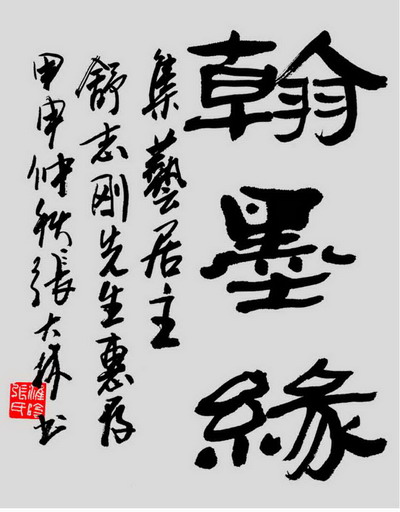 翰墨緣
集藝居主
舒志剛先生惠存
甲申仲秋張大林书